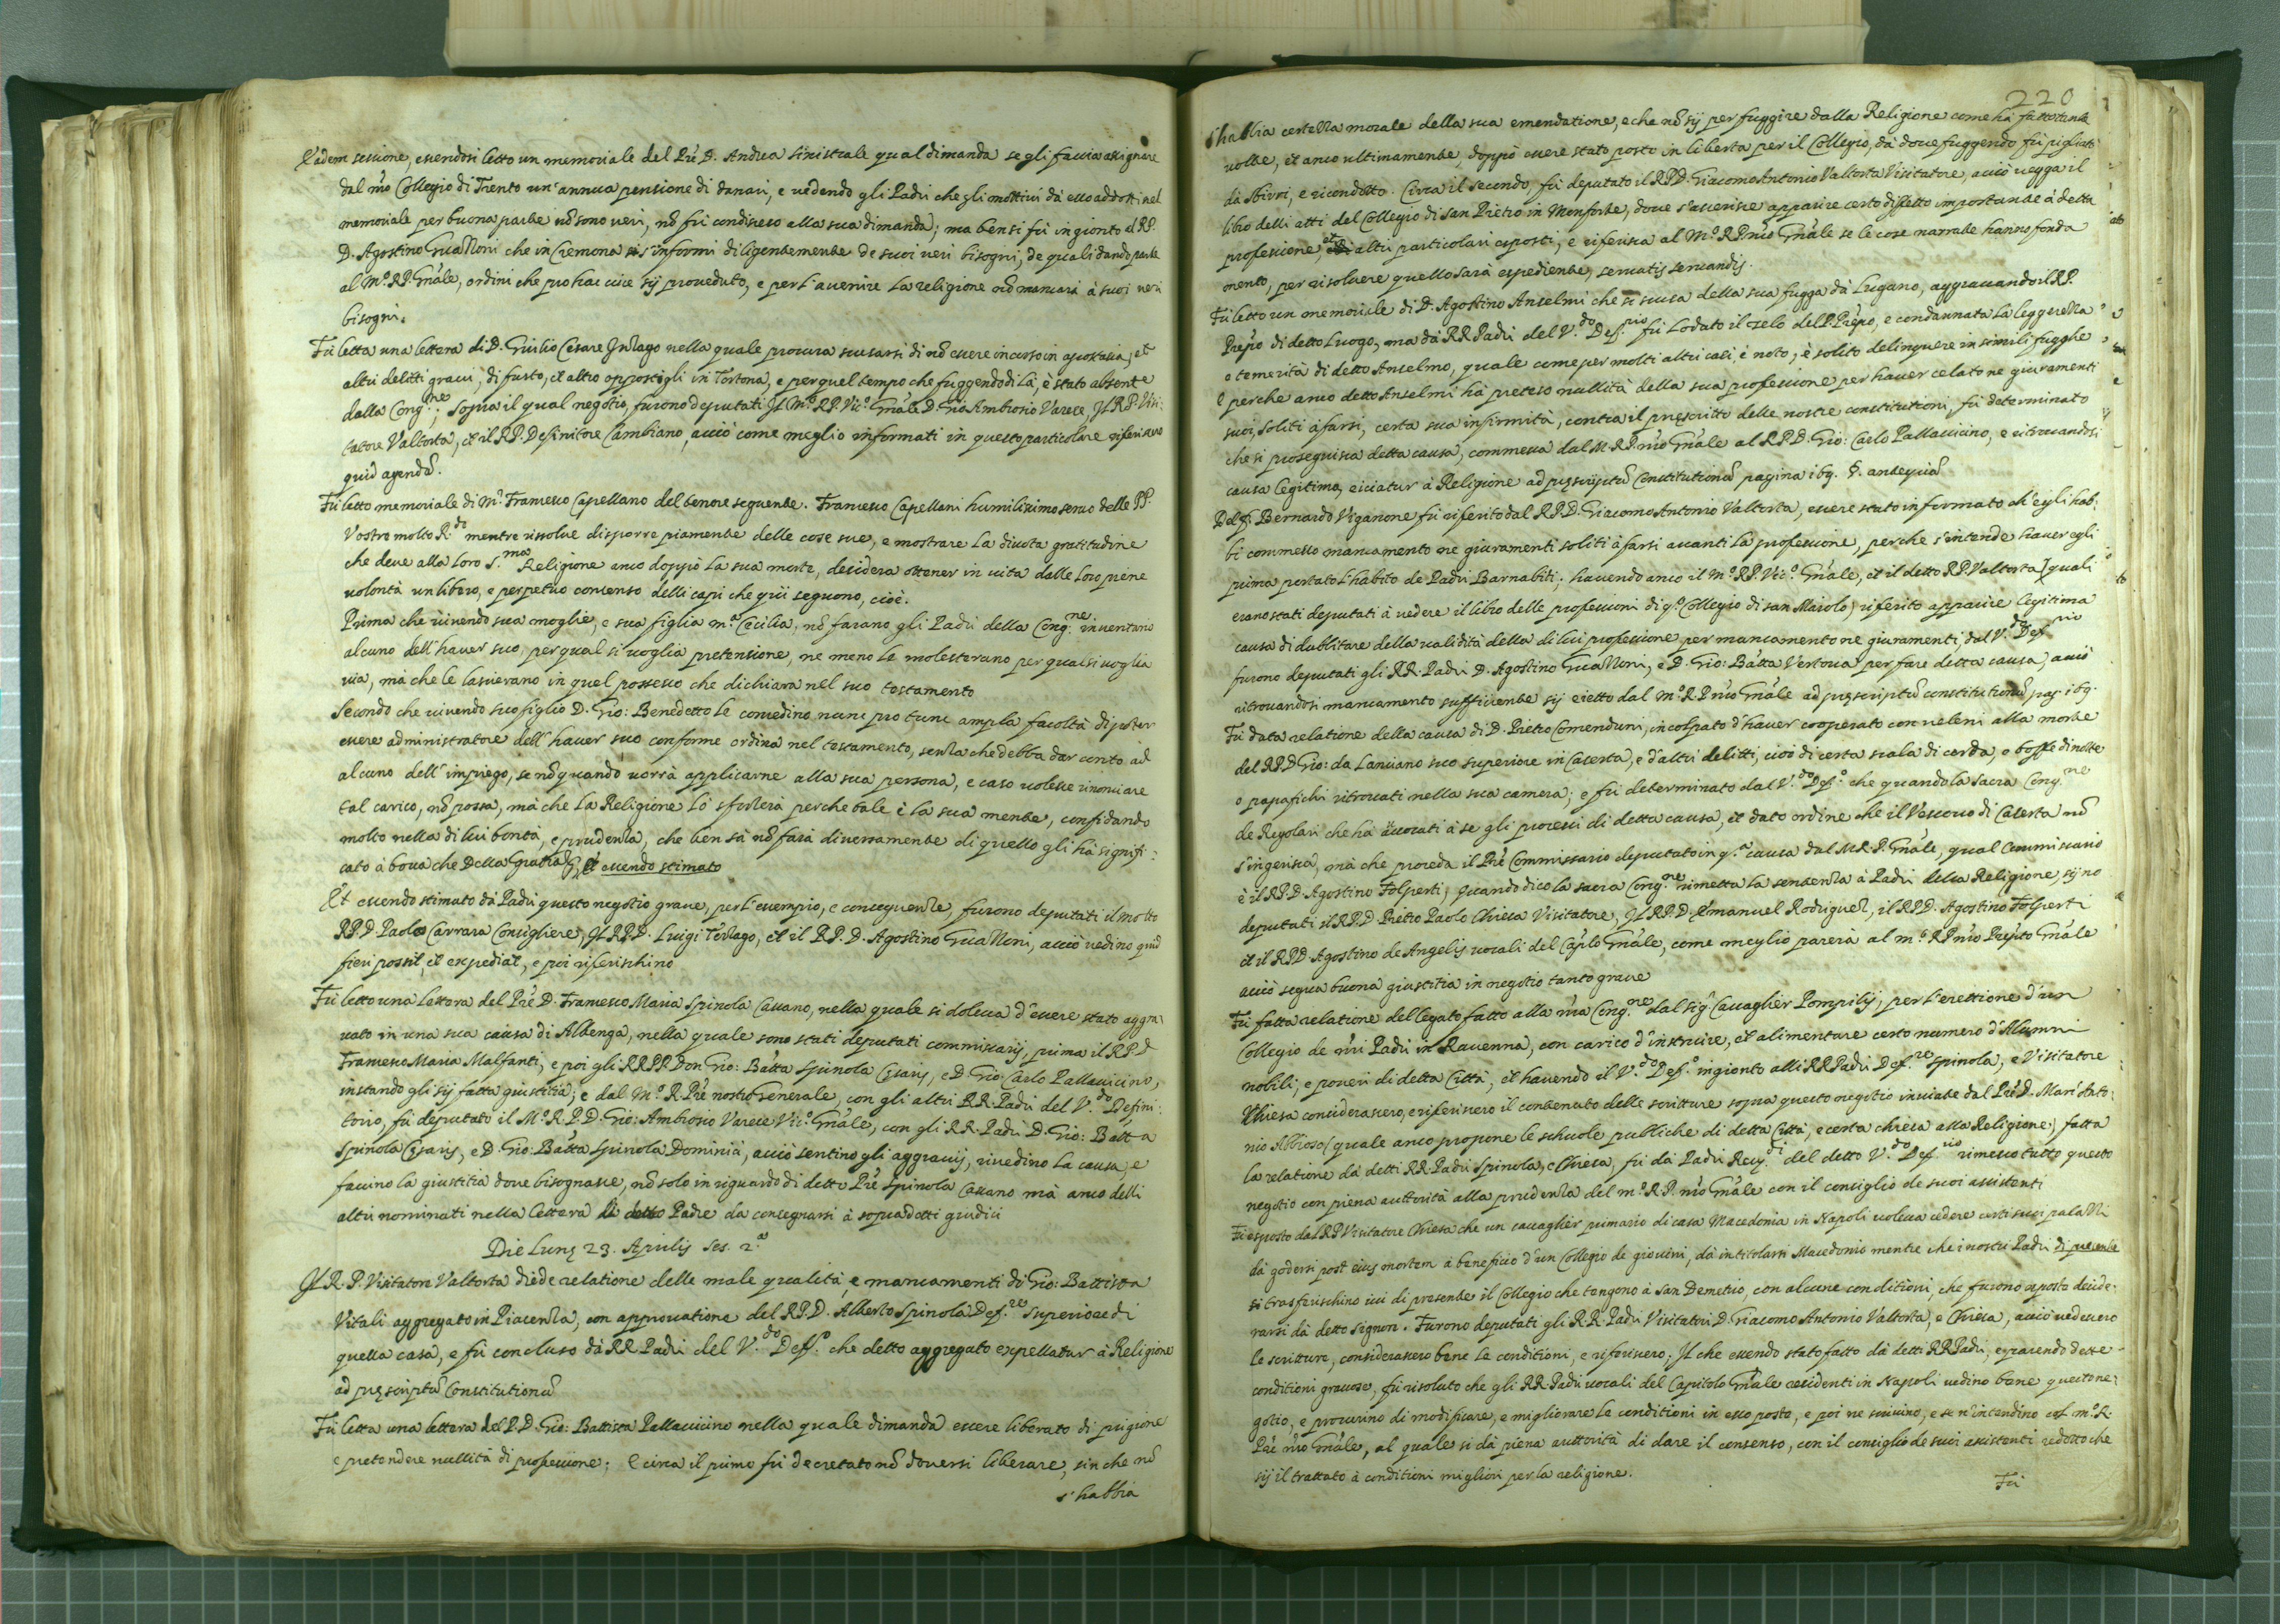 Eadem sessione, essendosi letto un memoriale del Prē D. Andrea Sinistrale qual dimanda se gli faccia assignare
dal nr̃o Collegio di Trento un'annua pensione di danari, e vedendo gli Padri che gli mottivi dà esso addotti nel
memoriale per buona parte nõ sono veri, nõ fù condisceso alla sua dimanda; ma bensi fù ingionto al RP.
D. Agostino Guazzoni che in Cremona s'informi diligentemente de suoi veri bisogni, de quali dando parte
al Mº. RP. Gñale, ordini che pro hac vice sij proveduto, e per l'avenire la religione nõ mancarà à suoi veri
bisogni.
Fù letta una lettera di D. Giulio Cesare Inzago nella quale procura scusarsi di nõ essere incorso in apostasia, et
altri delitti gravi, di furto, et altro oppostigli in Tortona, e per quel tempo che fuggendo di là, è stato absente
dalla Cong.ne; sopra il qual negotio, furono deputati Il Mº. RP. Vicº. Gñale D. Gio Ambrosio Varese, Il RP. Visi:
tatore Valtorta, et il RP. Definitore Cambiano, acciò come meglio informati in questo particolare riferissero
quid agendũ.
Fù letto memoriale di Mr. Francesco Capellano del tenore seguente. Francesco Capellani humilissimo servo delle PP.
Vostre molto R.de mentre rissolve disporre piamente delle cose sue, e mostrare la divota gratitudine
che deve alla loro S.ma Religione anco doppò la sua morte, desidera ottener in vita dalle loro piene
volontà un libero, e perpetuo consenso delli capi che qui seguono, cioè.
Prima che vivendo sua moglie, e sua figlia m.a Cecilia, nõ farano gli Padri della Cong.ne inventario
alcuno dell'haver suo, per qual si voglia pretensione, ne meno le molesterano per qual si voglia
via, mà che le lascierano in quel possesso che dichiara nel suo testamento
Secondo che vivendo suo figlio D. Gio: Benedetto le concedino nunc pro tunc ampla facoltà di poter
essere administratore dell'haver suo conforme ordina nel testamento, senza che debba dar conto ad
alcuno dell'impiego, se nõ quando vorrà applicarne alla sua persona, e caso volesse rinonciare
tal carico, nõ possa, mà che la Religione lo sforzerà perche tale è la sua mente, confidando
molto nella di lui bontà, e prudenza, che ben sà nõ farà diversamente di quello gli hà signifi:
cato à bocca che Della Gratia &c. Et essendo stimato
Et essendo stimato dà Padri questo negotio grave, per l'essempio, e conseguenze, furono deputati il molto
RP. D Paolo Carrara Consigliere, Il RP. D. Luigi Terzago, et il RP. D. Agostino Guazzoni, acciò vedino quid
fieri possit, et expediat, e poi riferischino
Fù letto una lettera del Prē D. Francesco Maria Spinola Cassano, nella quale si doleva d'essere stato aggra:
vato in una sua causa di Albenga, nella quale sono stati deputati commissarij, prima il R.P.D
Francesco Maria Malfanti, e poi gli RR.PP. Don Gio: Batta Spinola Cęsaris, e D. Gio: Carlo Pallavicino,
instando gli sij fatta giustitia; e dal Mº. R. Prē nostro Generale, con gli altri RR. Padri del V.do Defini:
torio, fù deputato il Mº. R. P. D. Gio: Ambrosio Varese Vicº. Gñale, con gli RR. Padri D. Gio: Batta
Spinola Cęsaris, e D. Gio: Batta Spinola Dominici, acciò sentino gli aggravij, rivedino la causa, e
faccino la giustitia dove bisognasse, nõ solo in riguardo di detto Prē Spinola Cassano mà anco delli
altri nominati nella lettera di detto Padre da consegnarsi à sopradetti giudici
Die Lunę 23. Aprilis Ses. 2.a
Il R. P. Visitatore Valtorta diede relatione delle male qualità, e mancamenti di Gio: Battista
Vitali aggregato in Piacenza, con approvatione del R.P.D. Alberto Spinola Def.re Superiore di
quella casa, e fù concluso dà RR Padri del V.do Deff.o che detto aggregato expellatur à Religione
ad pręscriptũ Constitutionũ
Fù letta una lettera del P. D. Gio: Battista Pallavicino nella quale dimanda essere liberato di prigione
e pretendere nullità di professione; E circa il primo fù decretato nõ doversi liberare, sin che nõ
s'habbia
220
s'habbia certezza morale della sua emendatione, e che nõ sij per fuggire dalla Religione come hà fatto tante
volte, et anco ultimamente, doppò essere stato posto in libertà per il Collegio, dà dove fuggendo fù pigliato
dà sbirri, e ricondotto. Circa il secondo, fù deputato il R.P.D. Giacomo Antonio Valtorta Visitatore, acciò vegga il
libro delli atti del Collegio di San Pietro in Monforte, dove s'asserisce apparire certo difetto importante à detta
professione, et altri particolari esposti, e riferisca al Mº. RP. nr̃o Gñale se le cose narrate hanno fonda
mento, per risolvere quello sarà espediente, servatis servandis.
Fù letto un memoriale di D. Agostino Anselmi che si scusa della sua fugga dà Lugano, aggravando il RP.
Prep̃to di detto luogo, ma dà RR Padri del V.do Def.rio fù lodato il zelo del P. Prep̃to, e condannata la leggerezza
o temerità di detto Anselmo, quale come per molti altri casi, è noto, è solito delinquere in simili fugghe
E perche anco detto Anselmi hà preteso nullità della sua professione per haver celato ne giuramenti
suoi, soliti à farsi, certa sua infirmità, contra il pręscritto delle nostre constitutioni, fù determinato
che si proseguisca detta causa, commessa dal M. RP. nr̃o Gñale al R.P.D. Gio: Carlo Pallavicino, e ritrovandosi
causa legitima, eiiciatur à Religione ad pręscriptũ Constitutionũ pagina 169. §. antequã
Del fr̃. Bernardo Viganone fù riferito dal R.P.D. Giacomo Antonio Valtorta, essere stato informato ch'egli hab:
bi commesso mancamento ne giuramenti soliti à farsi avanti la professione, perche s'intende haver egli
prima portato l'habito de Padri Barnabiti; havendo anco il Mº. RP. Vicº. Gñale, et il detto RP. Valtorta (quali
erano stati deputati à vedere il libro delle professioni di q.o Collegio di san Maiolo) riferito apparire legitima
causa di dubbitare della validità della di lui professione per mancamento ne giuramenti, dal V.do Def.rio
furono deputati gli RR. Padri D. Agostino Guazzoni, e D. Gio: Batta Vertova per fare detta causa, acciò
ritrovandosi mancamento sufficiente sij eietto dal Mº. R. P. nr̃o Gñale ad pręscriptũ constitutionũ pag. 169.
Fù data relatione della causa di D. Pietro Comenduni, incolpato d'haver cooperato con veleni alla morte
del R.P.D Gio: da Lanciano suo superiore in Caserta, e d'altri delitti, cioè di certa scala di corda, o boffe di notte
o papafichi ritrovati nella sua camera; e fù determinato dal V.do Def.o che quando la Sacra Cong.ne
de Regolari che hà avvocati à se gli processi di detta causa, et dato ordine che il Vescovo di Caserta nõ
s'ingerisca, mà che proceda il Prē Commissario deputato in q.a causa dal M.R.P. Gñale, qual Commissario
è il R.P.D. Agostino Folperti, Quando dico la sacra Cong.ne rimetta la sentenza à Padri della Religione, sijno
deputati il R.P.D Pietro Paolo Chiesa Visitatore, Il R.P.D Emanuel Rodriguez, il R.P.D. Agostino Folperti
et il R.P.D Agostino de Angelis vocali del Caplo Gñale, come meglio parerà al mº. RP nr̃o Prep̃to Gñale
acciò segua buona giustitia in negotio tanto grave
Fù fatta relatione del legato fatto alla nr̃a Cong.ne dal Sig.r Cavaglier Pompilij, per l'erettione d'un
Collegio de nr̃i Padri in Ravenna, con carico d'instruire, et alimentare certo numero d'Allumni
nobili, e poveri di detta Città, et havendo il V.do Def.o ingionto alli RR Padri Def.re Spinola, e Visitatore
Chiesa considerassero, e riferissero il contenuto delle scritture sopra questo negotio inviate dal Prē D. Marc'Anto:
nio Albioso (quale anco propone le schuole publiche di detta Città, e certa chiesa alla Religione) fatta
la relatione da detti RR. Padri Spinola, e Chiesa, fù dà Padri Rev.di del detto V.do Def.rio rimesso tutto questo
negotio con piena auttorità alla prudenza del mº. R. P. nr̃o Gñale con il consiglio de suoi assistenti
Fù esposto dal RP Visitatore Chiesa che un cavaglier primario di casa Macedonia in Napoli voleva cedere certi suoi palazzi
dà godersi post eius mortem à beneficio d'un Collegio de giovini, dà intitolarsi Macedonio mentre che i nostri Padri di presente
si trasferischino ivi di presente il Collegio che tengono à San Demetrio, con alcune conditioni, che furono esposto deside:
rarsi dà detto Signore. Furono deputati gli RR. Padri Visitatori D. Giacomo Antonio Valtorta, e Chiesa, acciò vedessero
le scritture, considerassero bene le conditioni, e riferissero; Il che essendo stato fatto dà detti RR Padri, e parendo dette
conditioni gravose, fù risoluto che gli RR. Padri vocali del Capitolo Gñale residenti in Napoli vedino bene questo ne:
gotio, e procurino di modificare, e migliorare le conditioni in esso poste, e poi ne scrivino, e se n'intendino col mº. R.
Prē nr̃o Gñale, al quale si dà piena auttorità di dare il consenso, con il consiglio de suoi assistenti redotto che
sij il trattato à conditioni migliori per la religione.
Fù